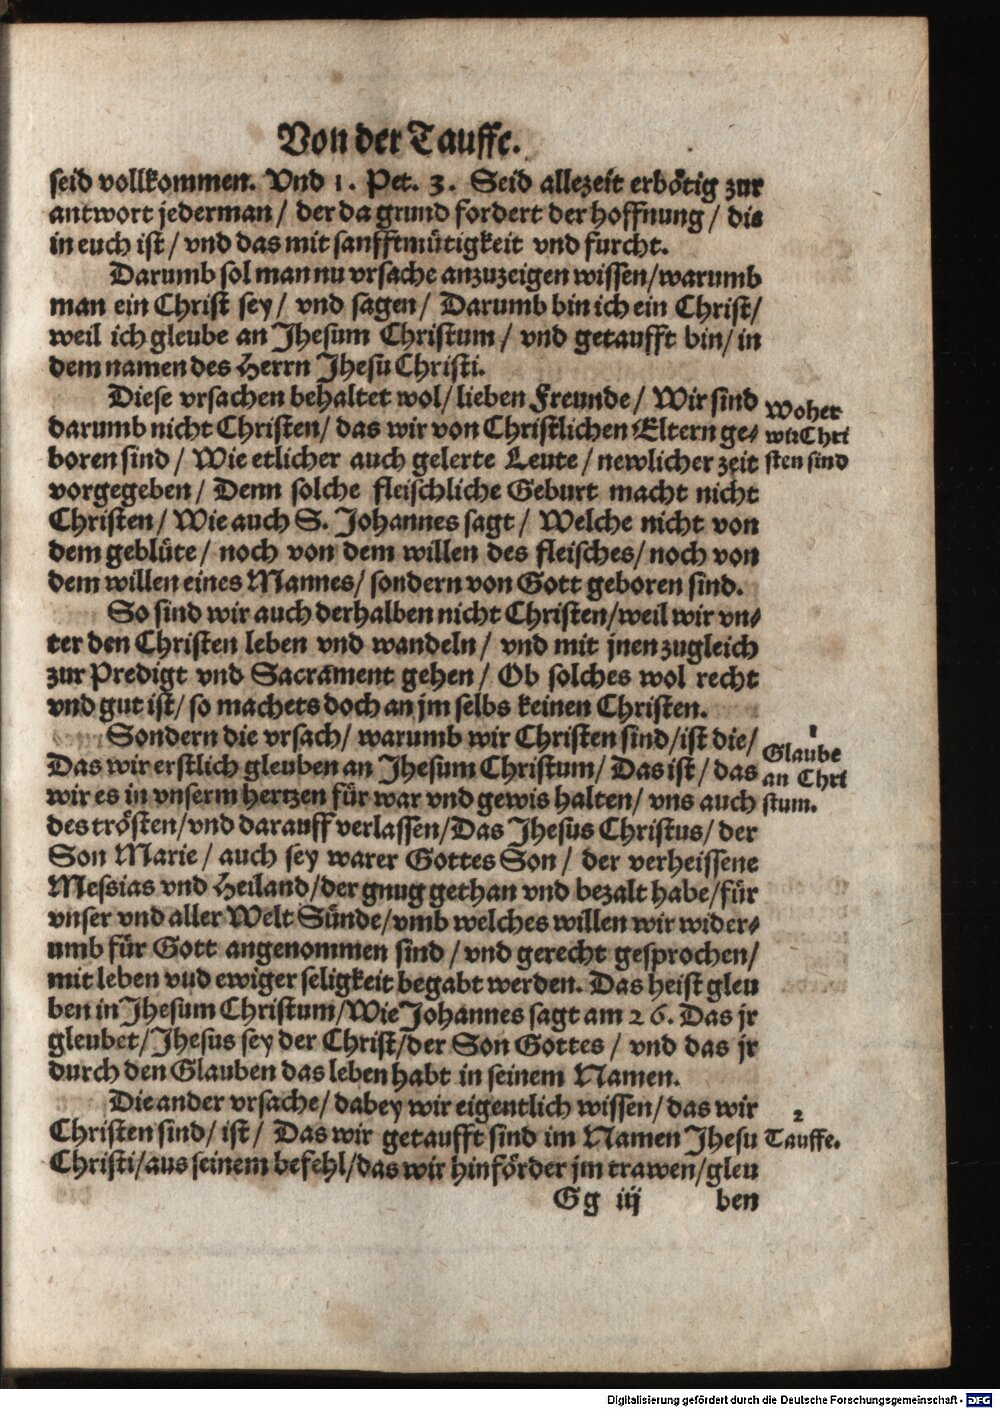 Von der Tauffe.
seid vollkommen. Vnd 1. Pet. 3. Seid allezeit erbötig zur
antwort jederman / der da grund fordert der hoffnung / die
in euch ist / vnd das mit sanfftmütigkeit vnd furcht.
Darumb sol man nu vrsache anzuzeigen wissen/warumb
man ein Christ sey / vnd sagen / Darumb bin ich ein Christ/
weil ich gleube an Jhesum Christum / vnd getaufft bin/ in
dem namen des Herrn Jhesu Christi.
Diese vrsachen behaltet wol/ lieben Freunde / Wir sind
darumb nicht Christen/ das wir von Christlichen Eltern ge-
boren sind / Wie etlicher auch gelerte Leute / newlicher zeit
vorgegeben / Denn solche fleischliche Geburt macht nicht
Christen / Wie auch S. Johannes sagt / Welche nicht von
dem geblüte / noch von dem willen des fleisches/ noch von
dem willen eines Mannes/ sondern von Gott geboren sind.
Woher
wir Chri
sten sind
So sind wir auch derhalben nicht Christen/weil wir vn-
ter den Christen leben vnd wandeln / vnd mit jnen zugleich
zur Predigt vnd Sacrament gehen / Ob solches wol recht
vnd gut ist/ so machets doch an jm selbs keinen Christen.
Sondern die vrsach/ warumb wir Christen sind/ist die/
Das wir erstlich gleuben an Jhesum Christum/ Das ist / das
wir es in vnserm hertzen für war vnd gewis halten/ vns auch
des trösten/vnd darauff verlassen/Das Jhesus Christus/ der
Son Marie / auch sey warer Gottes Son / der verheissene
Messias vnd Heiland/der gnug gethan vnd bezalt habe/für
vnser vnd aller Welt Sünde/vmb welches willen wir wider-
umb für Gott angenommen sind / vnd gerecht gesprochen/
mit leben vud ewiger seligkeit begabt werden. Das heist gleu
ben in Jhesum Christum/Wie Johannes sagt am 26. Das jr
gleubet/Jhesus sey der Christ/der Son Gottes / vnd das jr
durch den Glauben das leben habt in seinem Namen.
1
Glaube
an Chri
stum.
Die ander vrsache/ dabey wir eigentlich wissen/ das wir
Christen sind/ ist/ Das wir getaufft sind im Namen Jhesu
Christi/aus seinem befehl/das wir hinförder jm trawen/gleu
2
Tauffe.
Gg iij
ben
Digitalisierung gefördert durch die Deutsche Forschungsgemeinschaft - DFG